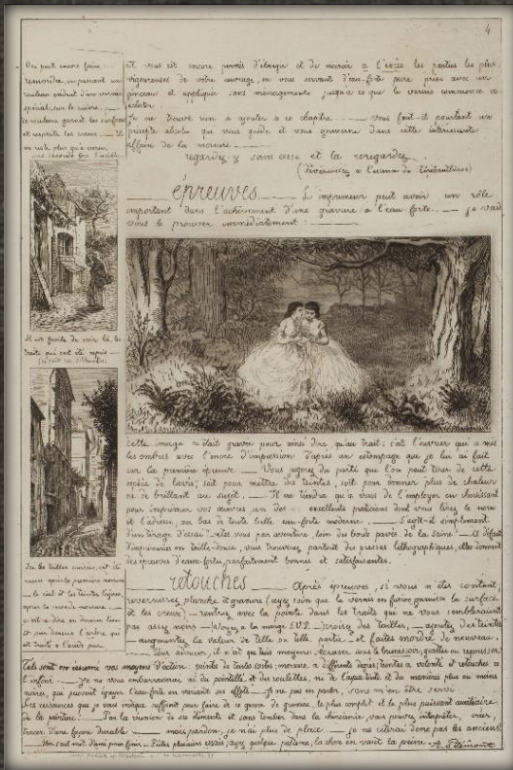 4
On peut encore faire
remordre, en passant un
rouleau enduit d'un vernis
spécial, sur le cuivre. —
ce rouleau garnit les surfaces
et respecte les creux. — Il
ne reste plus qu'à verser
une seconde fois l'acide
Il est facile de voir là, les
traits qui ont été repris —
Ici les tailles noircies, ont été
— le ciel et les teintes légères,
après la seconde morsure. —
Il vous est encore permis d'élargir et de noircir à l'excès les parties les plus
vigoureuses de votre ouvrage, en vous servant d'eau-forte pure prise avec un
pinceau et appliquée sans ménagements jusqu'à ce que le vernis commence à
éclater.
Je ne trouve rien à ajouter à ce chapitre. — Voici pourtant un
précepte absolu qui vous guide et vous gouverne dans cette intéressante
affaire de la morsure. —
regardez y sans cesse et la reregardez
épreuves — L'imprimeur peut avoir un rôle
important dans l'achèvement d'une gravure à l'eau forte. — je vais
vous le prouver immédiatement. —
Cette image n'était gravée pour ainsi dire qu'au trait; c'est l'ouvrier qui a mis
les ombres avec l'encre d'impression d'après un estompage que je lui ai fait
sur la première épreuve. — Vous jugerez du parti que l'on peut tirer de cette
espèce de lavis, soit pour mettre des teintes, soit pour donner plus de chaleur
ou de brillant au sujet. — Il ne tiendra qu'à vous de l'employer en choisissant
pour imprimer vos œuvres un des excellents praticiens dont vous lirez le nom
et l'adresse, au bas de toute belle eau-forte moderne. — S'agit-il simplement
d'un tirage d'essai? êtes vous par aventure, loin des bords parés de la Seine — A défaut
d'imprimeries en taille-douce, vous trouverez partout des presses lithographiques, elles donnent
des épreuves d'eaux-fortes, parfaitement bonnes et satisfaisantes.
retouches — Après épreuves, si vous n'êtes content,
revernissez planche et gravure (ayez soin que le vernis en garnisse la surface
et les creux) — rentrez avec la pointe dans les traits qui ne vous sembleraient
pas assez noirs — croisez des tailles, — ajoutez des teintes
— augmentez la valeur de telle ou telle partie et faites mordre de nouveau.
Tels sont en résumé vos moyens d'action: pointe de toutes sortes; morsure à différents degrés; teintes à volonté et retouches à
l'infini — Je ne vous embarrasserai ni du pointillé et des roulettes, ni de l'aquatinte et des manières plus ou moins
noires, qui peuvent égayer l'eau-forte en variant ses effets — à ne pas en parler, sans m'en être servi
Ces ressources que je vous indique suffisent pour faire de ce genre de gravure, le plus complet et le plus puissant auxiliaire
de la peinture. — Par la réunion de ses éléments et sans tomber dans la chinoiserie, vous pouvez interpréter, créer,
tracer d'une façon durable — mais pardon, je n'ai plus de place. — je ne citerai donc pas les anciens
— Un seul mot d'ami pour finir — Faites plusieurs essais; ayez quelque patience, la chose en vaut la peine.